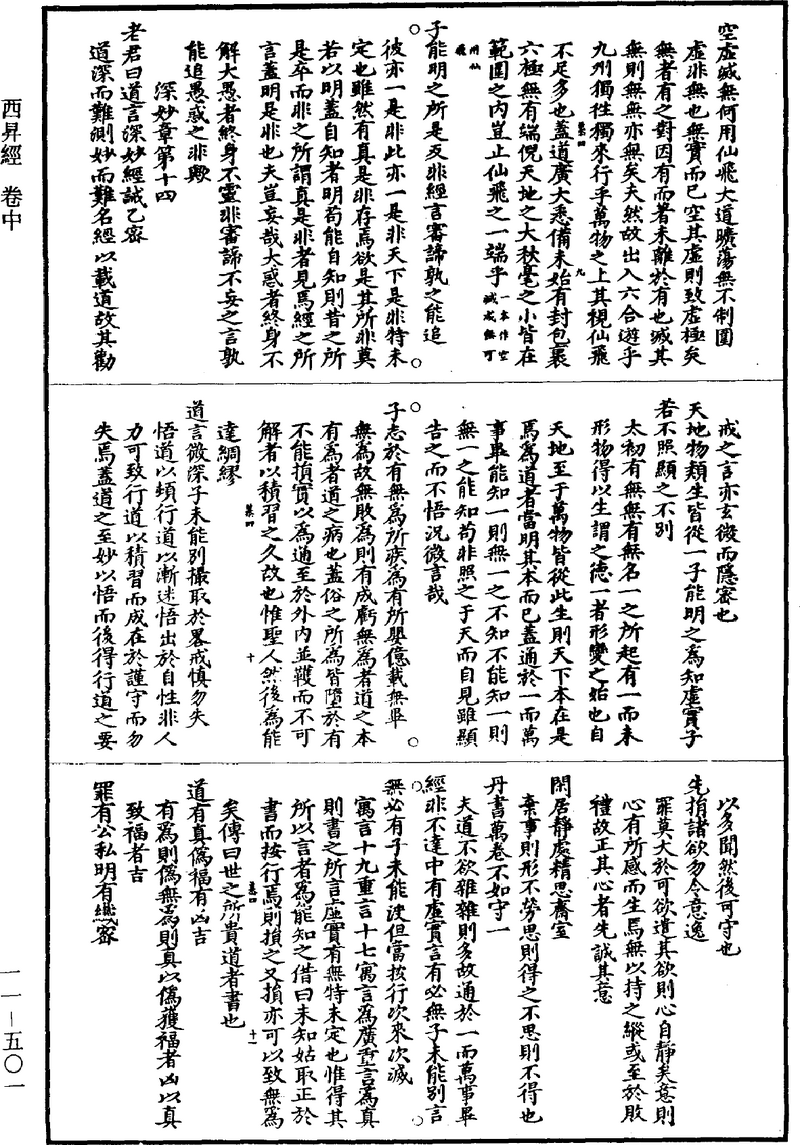 西昇經 卷中
一一—五〇一
空虛滅無何用仙飛大道曠蕩無不制圍
虛非無也無實而已空其虛則致虛極矣
無者有之對因有而著未離於有也滅其
無則無無亦無矣夫然故出入六合遊乎
九州獨徃獨來行乎萬物之上其視仙飛
不足多也蓋道廣大悉備未始有封包裹
六極無有端倪天地之大秋毫之小皆在
範圍之内豈止仙飛之一端乎一本作空滅咸無可用仙飛
子能明之所是反非經言審諦孰之能追
彼亦一是非此亦一是非天下是非特未
定也雖然有真是非存焉欲是其所非莫
若以明蓋自知者明苟能自知則昔之所
是卒而非之所謂真是非者見焉經之所
言蓋明是非也夫豈妄哉大惑者終身不
解大愚者終身不靈非審諦不妄之言孰
能追愚惑之非歟
深妙章第十四
老君曰道言深妙經誡乙密
道深而難測妙而難名經以載道故其勸
戒之言亦玄微而隱密也
天地物類生皆從一子能明之爲知虛實子
若不照顯之不別
太初有無無有無名一之所起有一而未
形物得以生謂之德一者形變之始也自
天地至于萬物皆從此生則天下本在是
焉爲道者當明其本而已蓋通於一而萬
事畢能知一則無一之不知不能知一則
無一之能知苟非照之于天而自見雖顯
告之而不悟況微言哉
子志於有無爲所疾爲有所嬰億載無畢
無爲故無敗爲則有成虧無爲者道之本
有爲者道之病也蓋俗之所爲皆墮於有
不能損實以爲通至於外内並韄而不可
解者以積習之久故也惟聖人然後爲能
達綢繆
道言微深子未能別撮取於畧戒慎勿失
悟道以頓行道以漸迷悟出於自性非人
力可致行道以積習而成在於謹守而勿
失焉蓋道之至妙以悟而後得行道之要
以多聞然後可守也
先捐諸欲勿令意逸
罪莫大於可欲遺其欲則心自靜矣意則
心有所感而生焉無以持之縱或至於敗
禮故正其心者先誠其意
閑居靜處精思齋室
棄事則形不勞思則得之不思則不得也
丹書萬卷不如守一
夫道不欲雜雜則多故通於一而萬事畢
經非不達中有虛實言有必無子未能別言
無必有子未能決但當按行次來次滅
寓言十九重言十七寓言爲廣重言爲真
則書之所言虛實有無特未定也惟得其
所以言者爲能知之借曰未知姑取正於
書而按行焉則損之又損亦可以致無爲
矣傳曰世之所貴道者書也
道有真僞福有凶吉
有爲則僞無爲則真以僞獲福者凶以真
致福者吉
罪有公私明有纖密